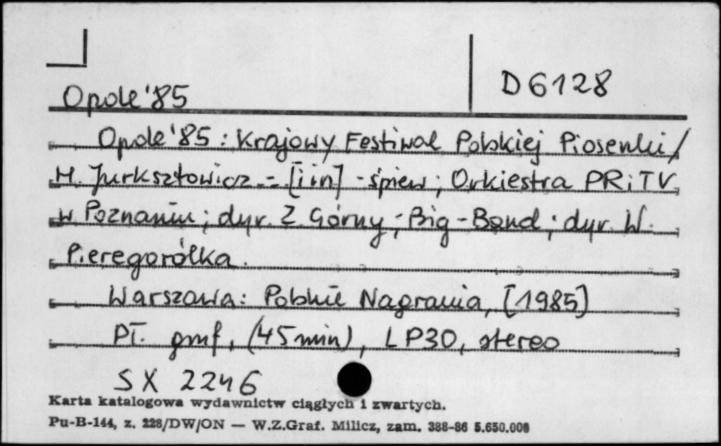 D 6128
Opole '85
Opole '85 : Krajowy Festiwal Polskiej Piosenki /
H. Jurksztowicz - [i in] - śpiew ; Orkiestra PR i TV
w Poznaniu ; dyr. Z. Górny ; Big-Band ; dyr. W.
Pieregorólka.
Warszawa : Polskie Nagrania, [1985]
Pł. gmf, (45 min), LP30, stereo
SX 2246
Karta katalogowa wydawnictw ciągłych i zwartych.
Pu-B-144, z. 228/DW/ON — W.Z.Graf. Milicz, zam. 388-86 5.650.000